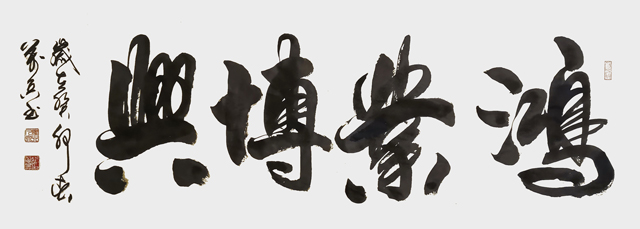 鴻業博興
歲在癸卯春